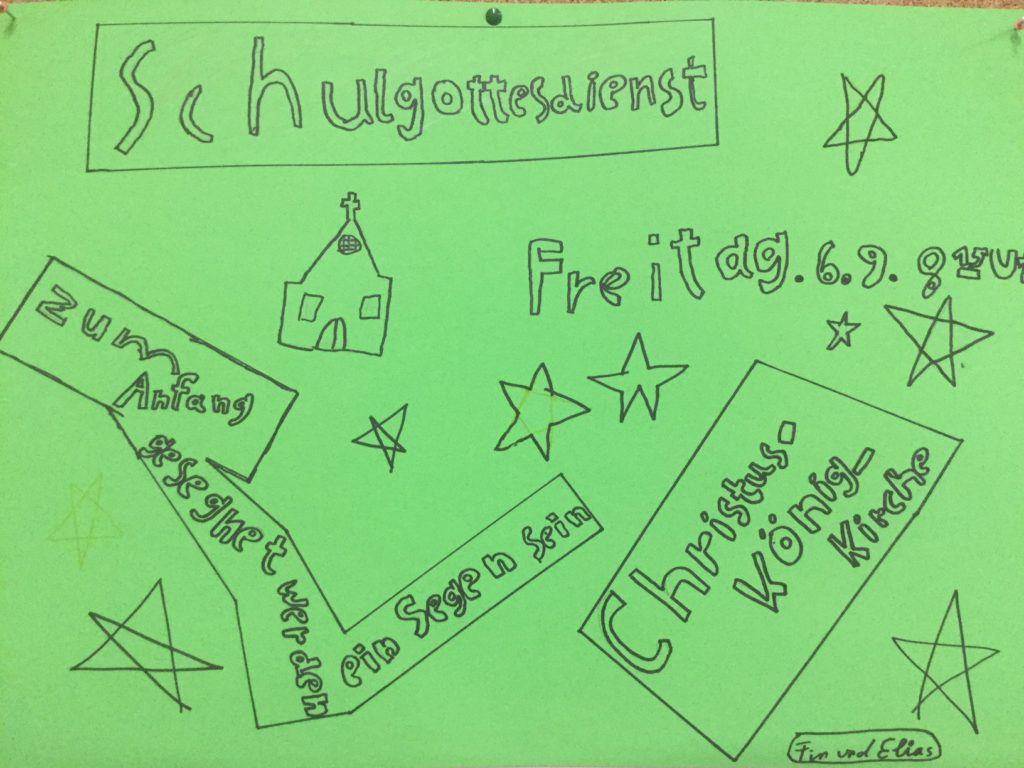 Schulgottesdienst
Freitag. 6. 9. 8
zum
Anfang
gesegnet werden
ein Segen sein
Christus-
König-
Kirche
Fin und Elias